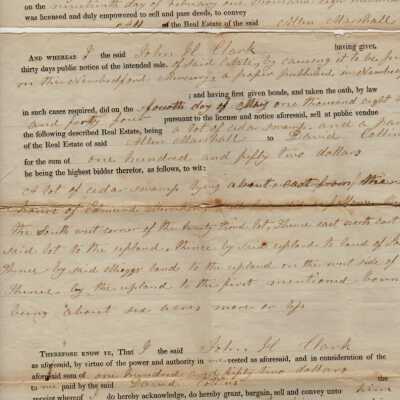 on the nineteenth day of February one thousand eight hundred
was licensed and duly empowered to sell and pass deeds, to convey
All of the Real Estate of said Allen Marshall
AND WHEREAS I the said John H Clark having given
thirty days public notice of the intended sale, of said Estate, by causing it to be
on the New Bedford Mercury, a paper published in New
; and having first given bonds, and taken the oath, by law
in such cases required, did on the fourth day of May one thousand eight
and forty four pursuant to the license and notice aforesaid, sell at public vendue
the following described Real Estate, being a lot of cedar swamp and a
of the Real Estate of said Allen Marshall to David Collins
for the sum of one hundred and fifty two dollars
he being the highest bidder therefor, as follows, to wit:
A lot of cedar swamp lying about east from the
of Edmund
the South west corner of the twenty third lot, thence east north east
said lot to the upland, thence by said upland to land of
thence by said land to the upland on the west side of
thence by the upland to the first mentioned boun
being about six acres more or less
THEREFORE KNOW YE, That I the said John H Clark
as aforesaid, by virtue of the power and authority in me vested as aforesaid, and in consideration of the
aforesaid sum of one hundred and fifty two dollars
to me paid by the said David Collins the
receipt whereof I do hereby acknowledge, do hereby grant, bargain, sell and convey unto him